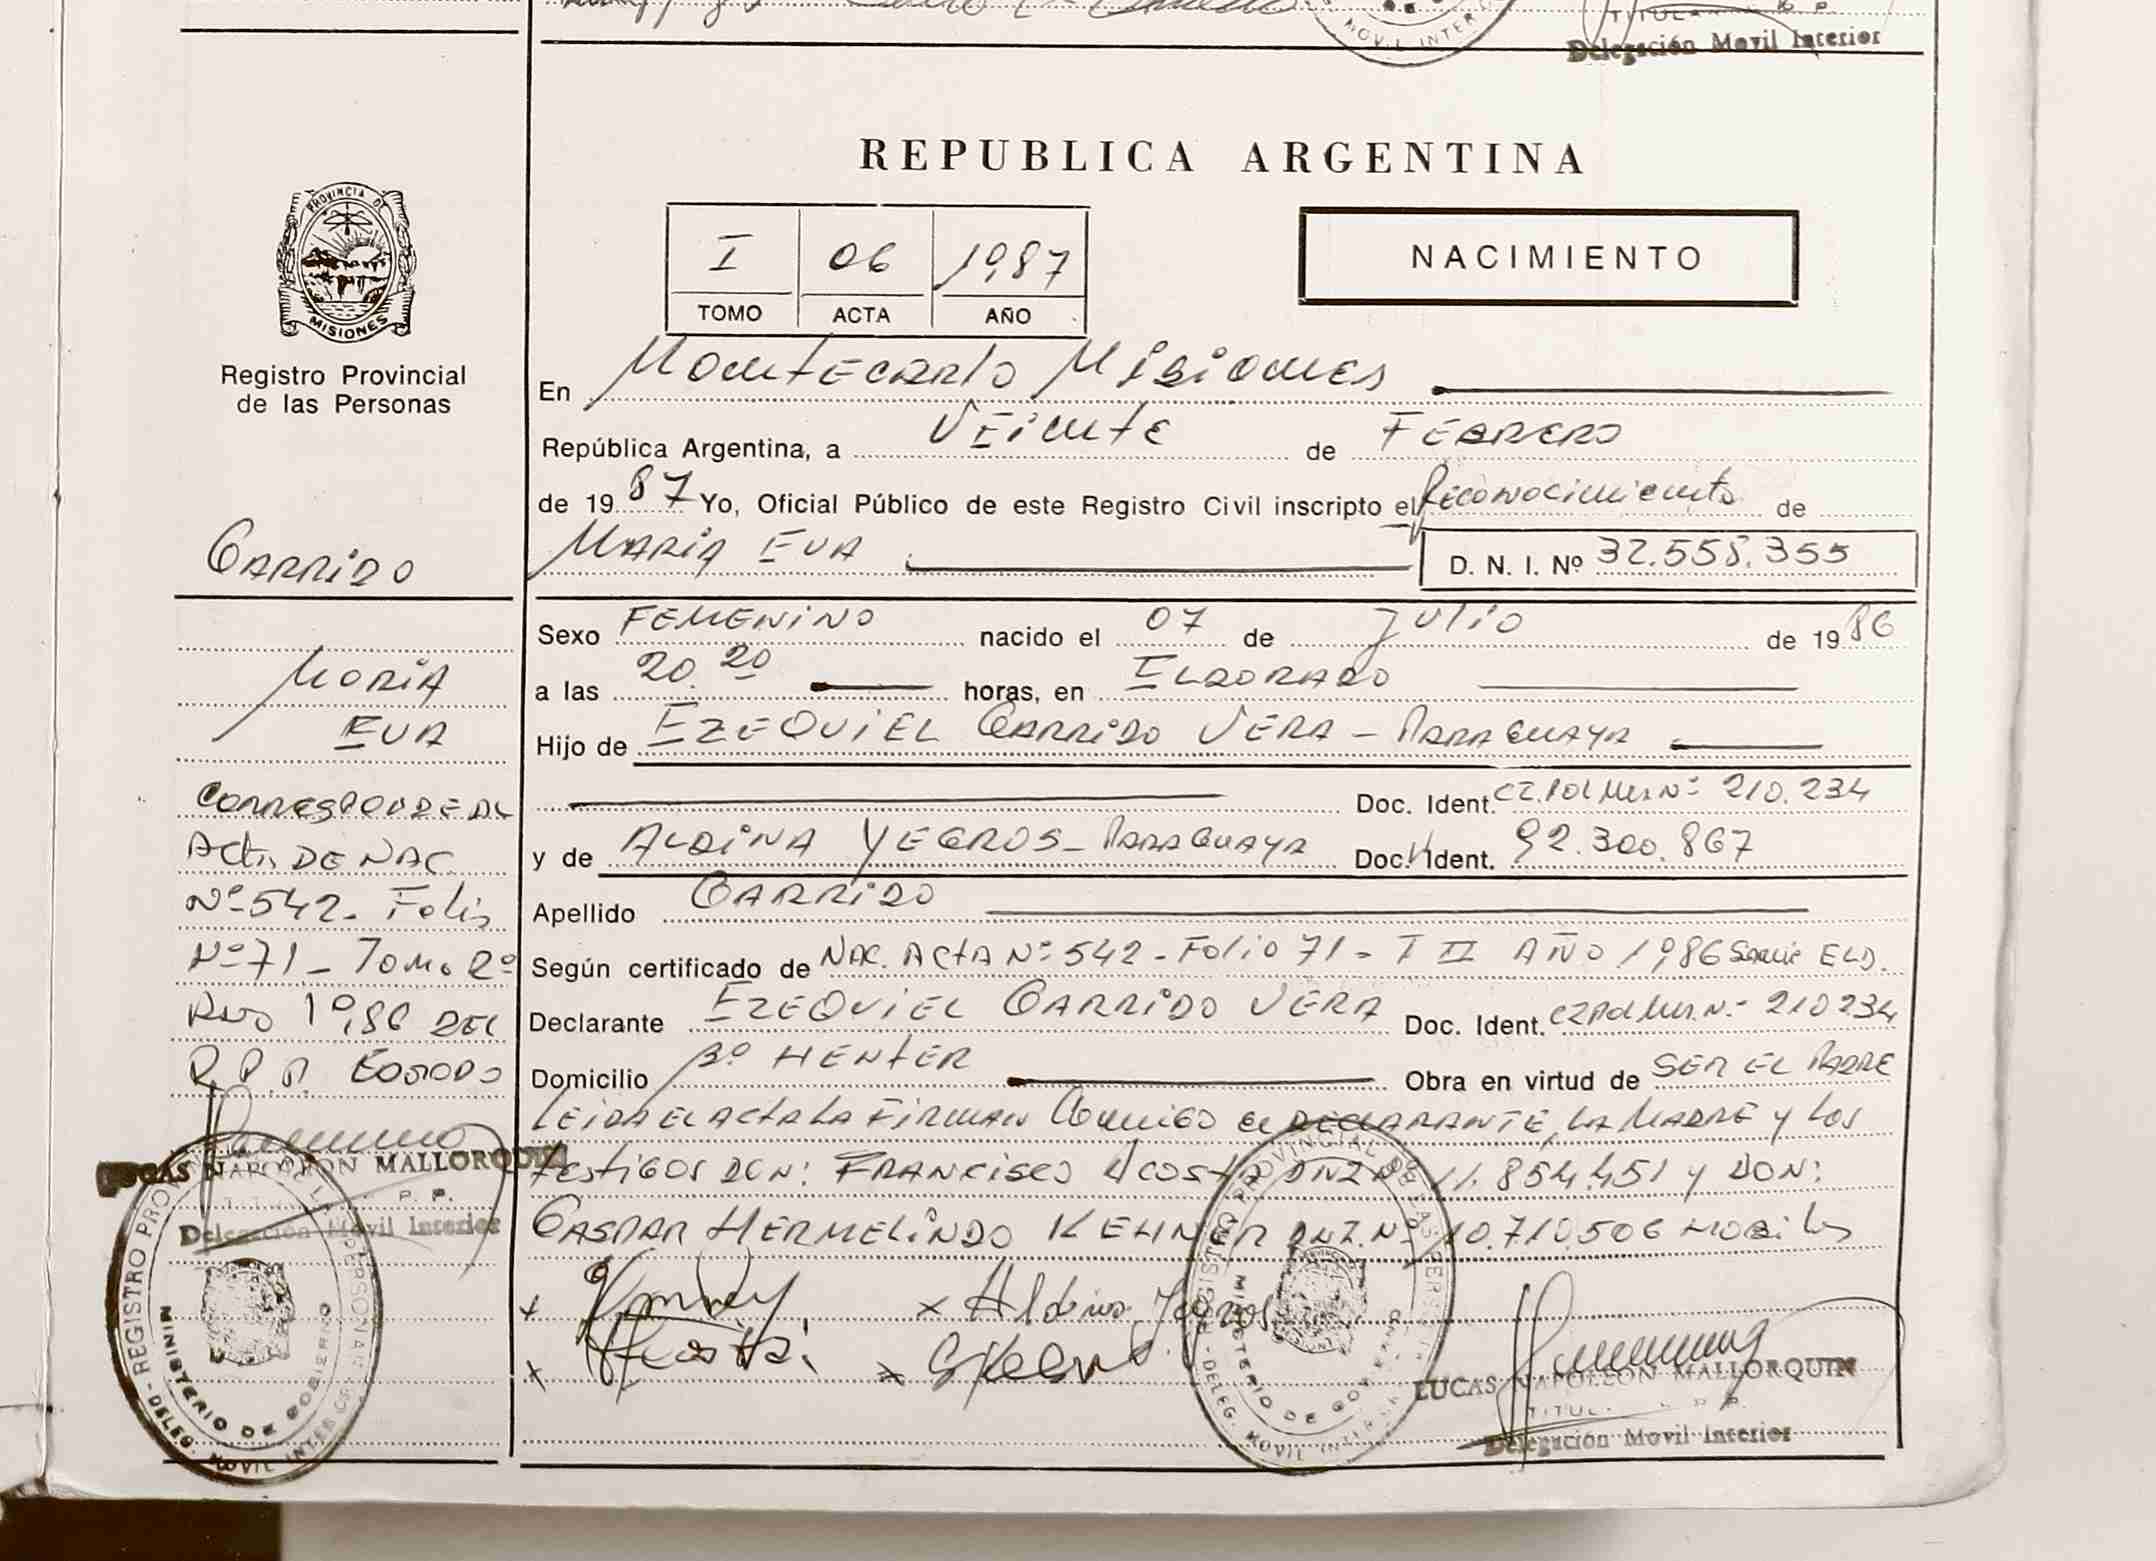 Delegación Movil Interior
REPUBLICA ARGENTINA
PROVINCIA DE
MISIONES
Registro Provincial
de las Personas
I 06 1987
TOMO ACTA AÑO
NACIMIENTO
En Montecarlo Misiones
República Argentina, a Veinte de Febrero
de 1987 Yo, Oficial Público de este Registro Civil inscripto el Reconocimiento de
Maria Eva
D. N. I. Nº 32.558.355
Garrido
Maria
Eva
Corresponde al
Acta de Nac.
Nº 542 - Folio
Nº 71 - Tomo 2º
Año 1986 del
R.P.P. Eldorado
LUCAS NAPOLEON MALLORQUIN
Delegación Movil Interior
Sexo Femenino nacido el 07 de Julio de 1986
a las 20.20 horas, en Eldorado
Hijo de Ezequiel Garrido Vera - Paraguaya
Doc. Ident. CI. Pol Mis Nº 210.234
y de Aldina Yegros - Paraguaya Doc. Ident. 92.300.867
Apellido Garrido
Según certificado de Nac. Acta Nº 542 - Folio 71 - T II Año 1986 ELD.
Declarante Ezequiel Garrido Vera Doc. Ident. CI Pol Mis. Nº 210234
Domicilio Bº Henter Obra en virtud de ser el Padre
Leida el acta la firman Conmigo el declarante, la Madre y los
testigos Don: Francisco Acosta DNI Nº 11.854.451 y Don:
Gaspar Hermelindo Kehner DNI. Nº 10.710.506 Habiles
x x Aldina Yegros
x Acosta x
REGISTRO PROVINCIAL DE LAS PERSONAS
MINISTERIO DE GOBIERNO
DELEG. MOVIL INTERIOR
LUCAS NAPOLEON MALLORQUIN
Delegación Movil Interior